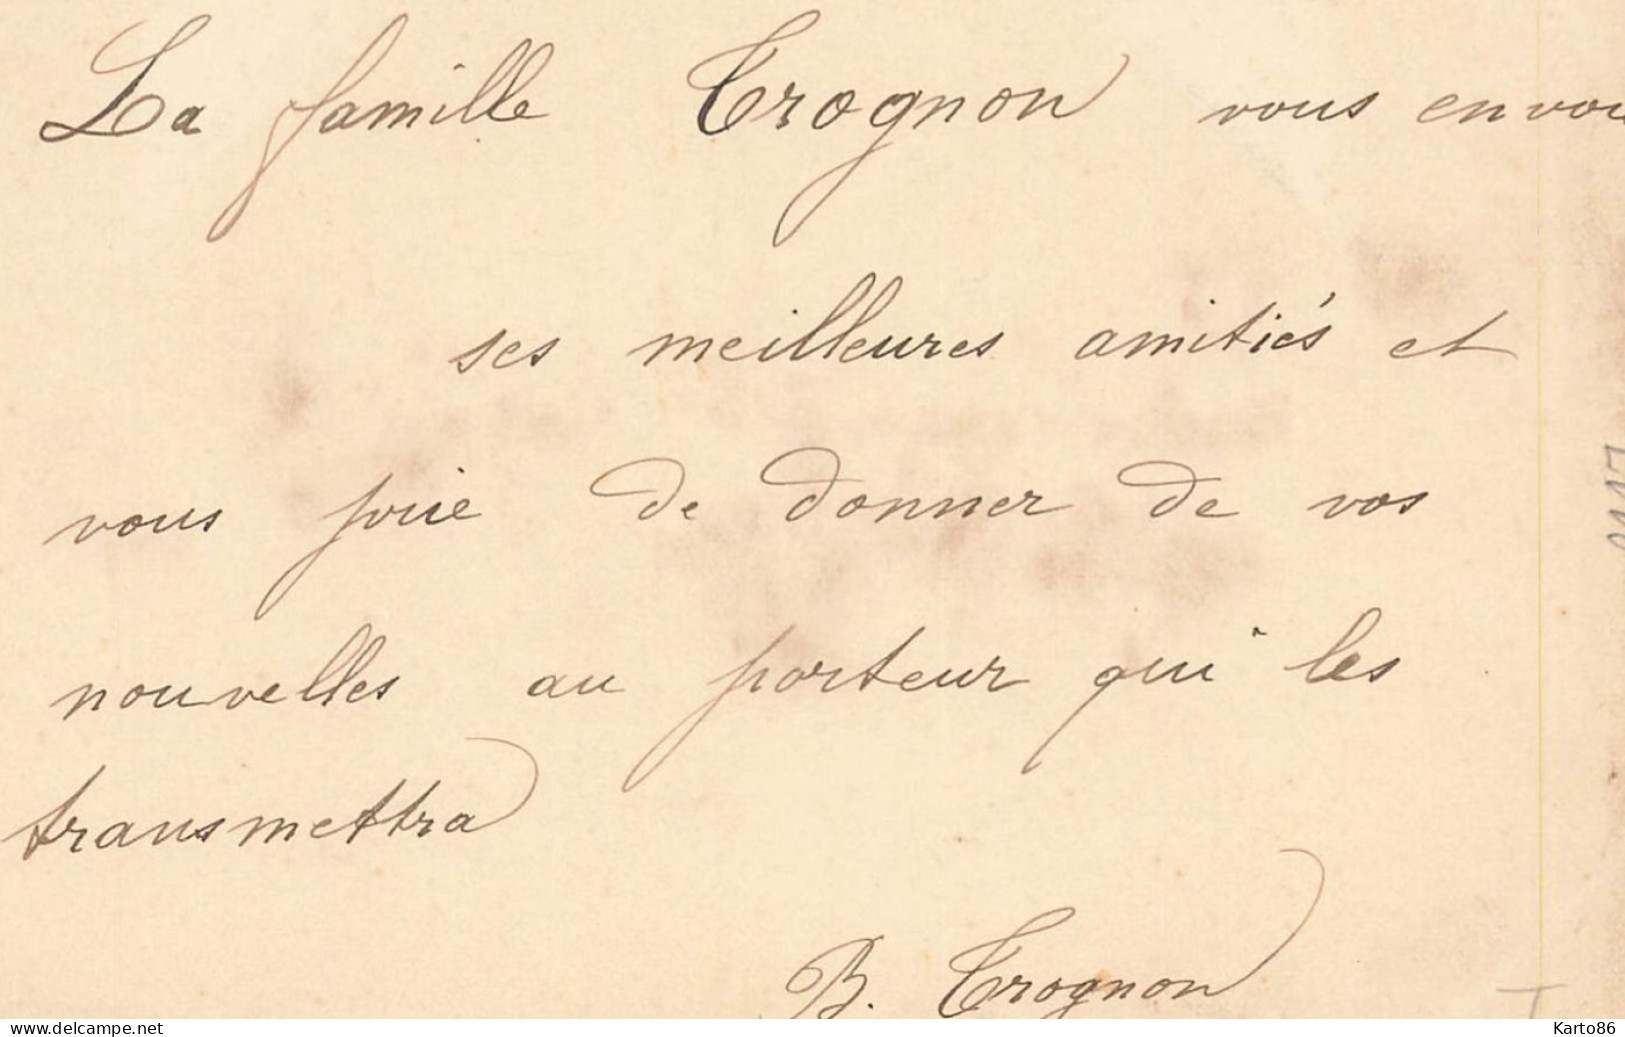 La famille Trognon vous envoi
ses meilleures amitiés et
vous prie de donner de vos
nouvelles au porteur qui les
transmettra
B. Trognon
www.delcampe.net
Karto86